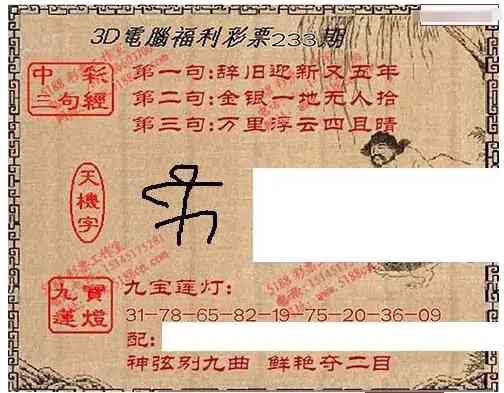 3D電腦福利彩票233期
中彩
三句經
第一句:辞旧迎新又五年
第二句:金银一地无人拾
第三句:万里浮云四且晴
天機字
九寶
蓮燈
九宝莲灯:
31-78-65-82-19-75-20-36-09
配:
神弦别九曲 鲜艳夺二目